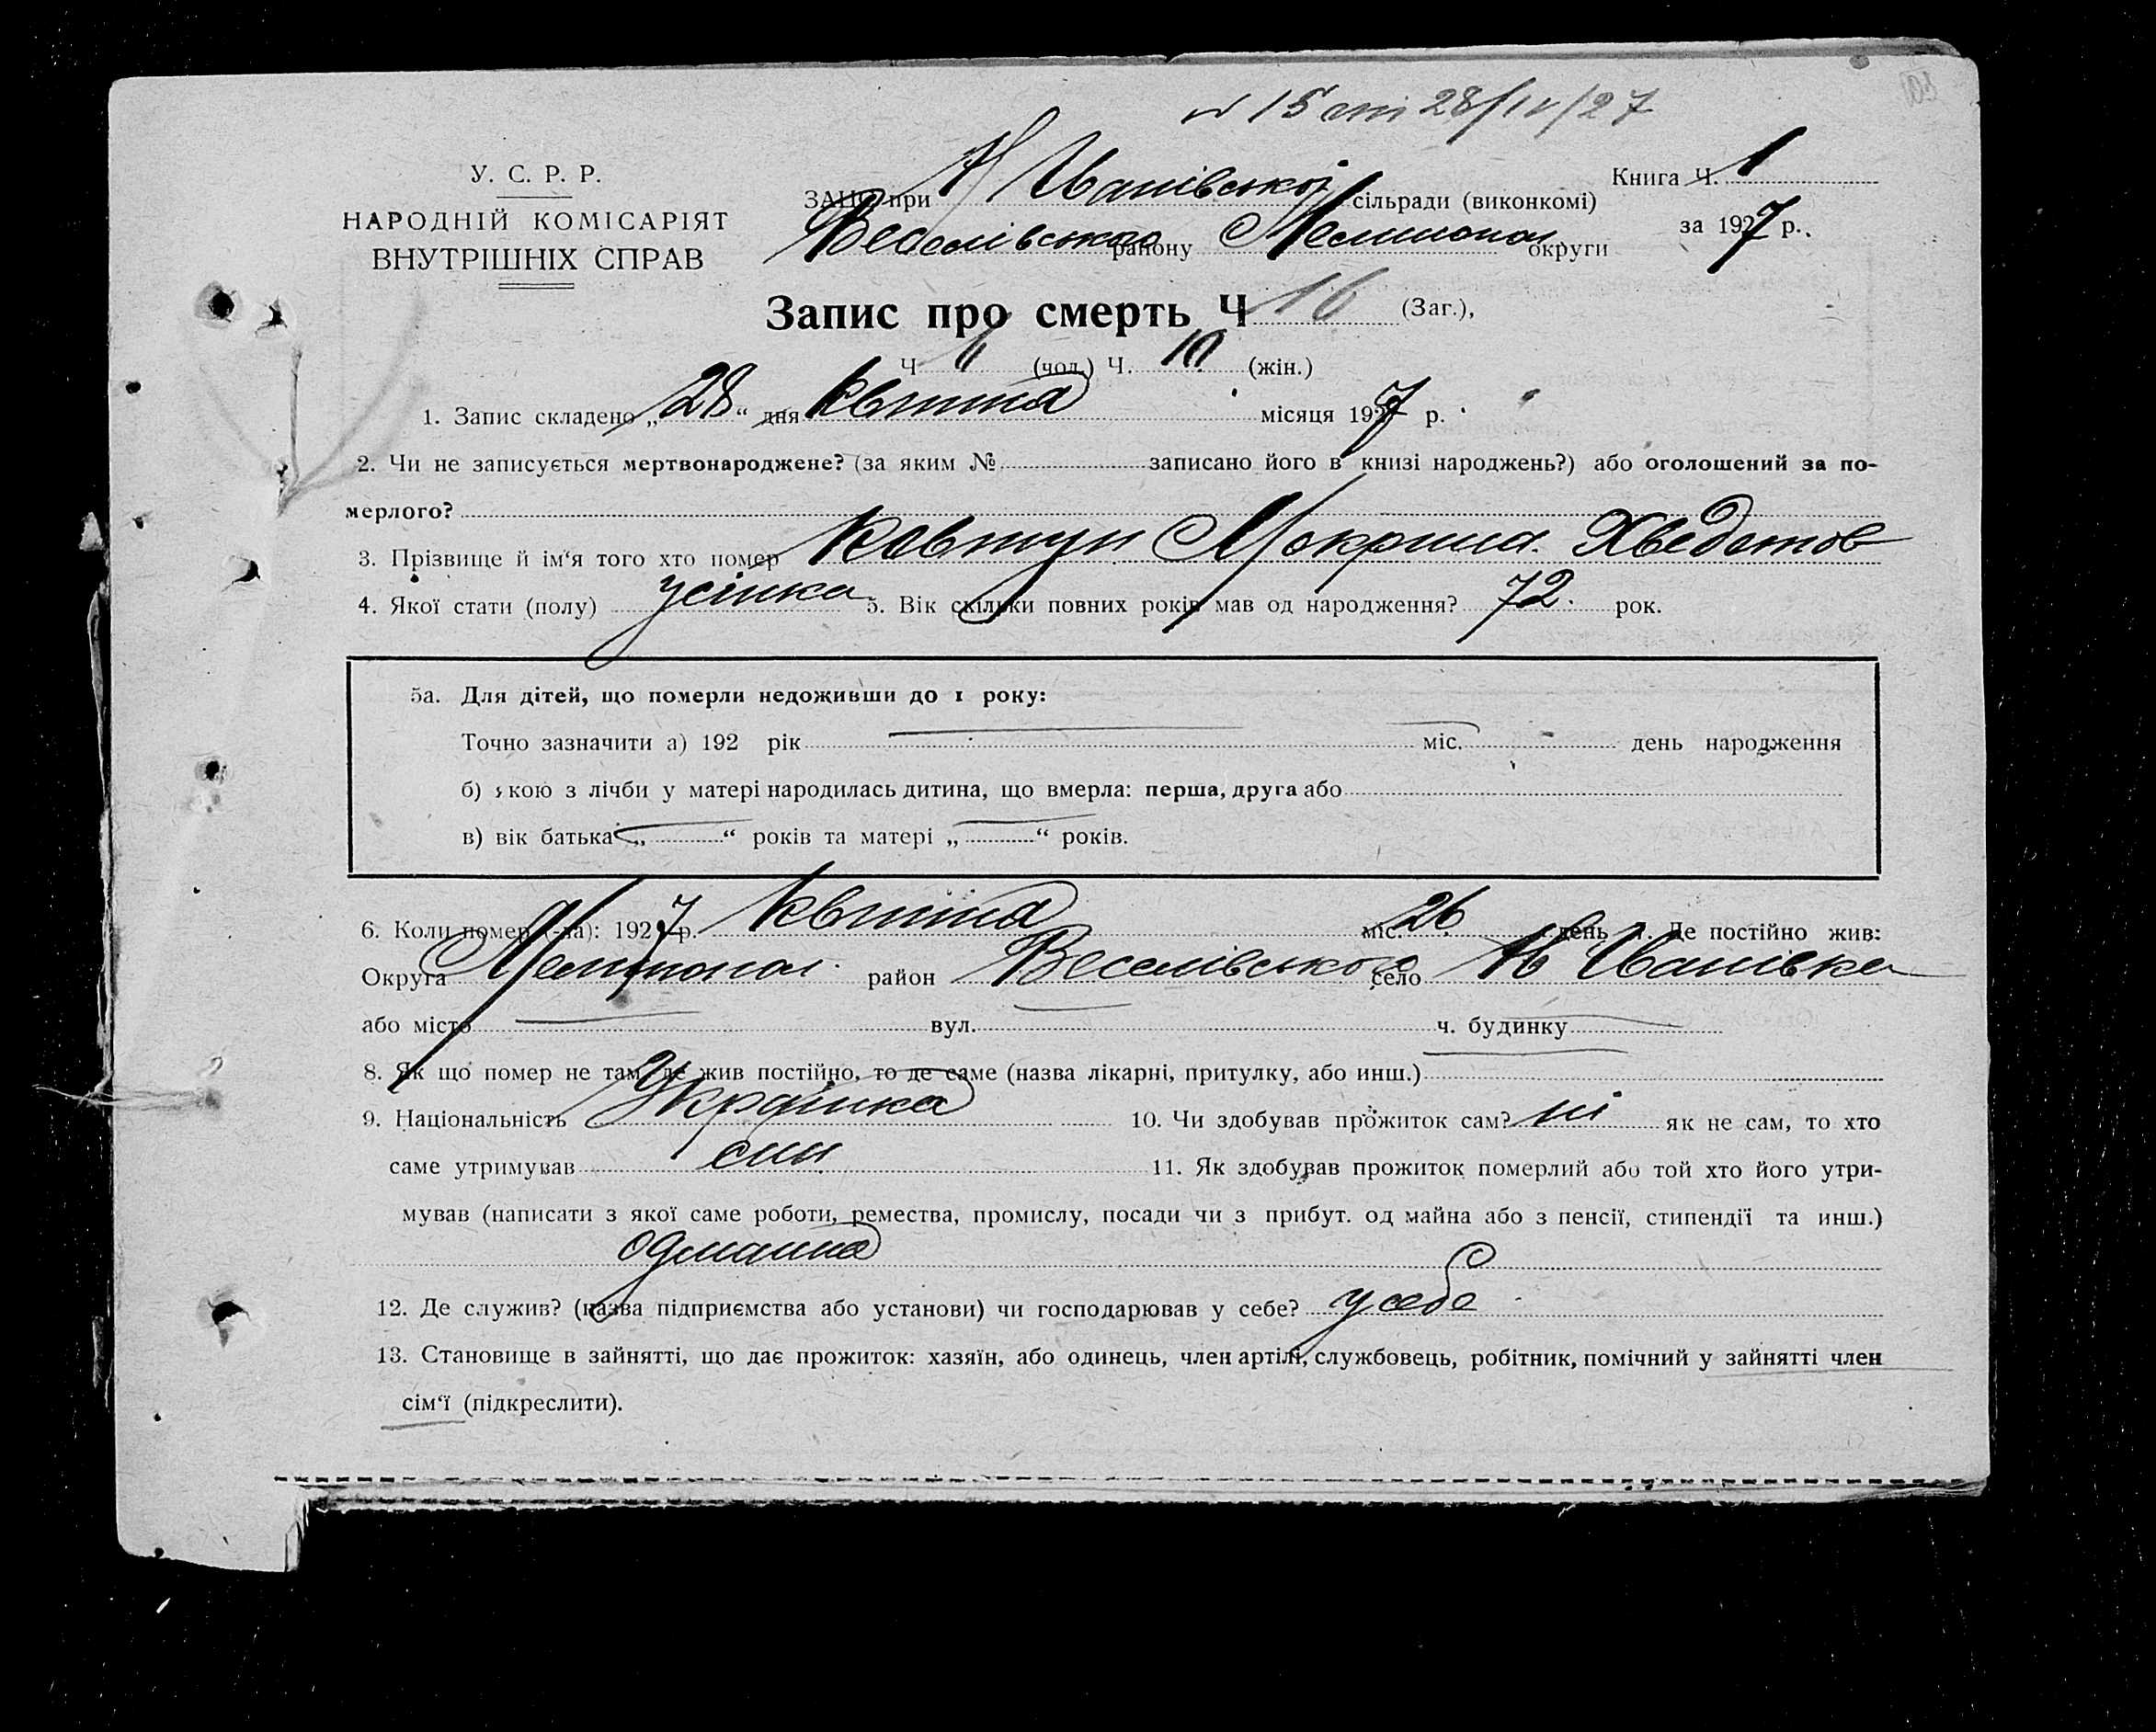 № 15 від 28/IV/27
У. С. Р. Р.
НАРОДНІЙ КОМІСАРІЯТ
ВНУТРІШНІХ СПРАВ
Книга Ч. 1
ЗАЦС при Н Іванівської сільради (виконкомі)
за 1927 р.
Веселівського району Мелітопол округи
Запис про смерть Ч 16 (Заг.),
Ч 6 (чол.) Ч. 10 (жін.)
1. Запис складено „28“ дня квітня місяця 1927 р.
2. Чи не записується мертвонароджене? (за яким № записано його в книзі народжень?) або оголошений за по-
мерлого?
3. Прізвище й ім‘я того хто помер Ковтун Мокрина
4. Якої стати (полу) 5. Вік скільки повних років мав од народження? 72 рок.
5а. Для дітей, що померли недоживши до 1 року:
Точно зазначити а) 192 рік міс. день народження
б) якою з лічби у матері народилась дитина, що вмерла: перша, друга або
в) вік батька „ “ років та матері „ “ років.
6. Коли помер (-ла): 1927 р. квітня міс. 26 день 7. Де постійно жив:
Округа Мелітопол район Веселівського село Н Іванівка
або місто вул. ч. будинку
8. Як що помер не там, де жив постійно, то де саме (назва лікарні, притулку, або инш.)
9. Національність Українка 10. Чи здобував прожиток сам? ні як не сам, то хто
саме утримував син 11. Як здобував прожиток померлий або той хто його утри-
мував (написати з якої саме роботи, ремества, промислу, посади чи з прибут. од майна або з пенсії, стипендії та инш.)
одмайна
12. Де служив? (назва підприємства або установи) чи господарював у себе? у себе
13. Становище в зайнятті, що дає прожиток: хазяїн, або одинець, член артілі, службовець, робітник, помічний у зайнятті член
сім‘ї (підкреслити).